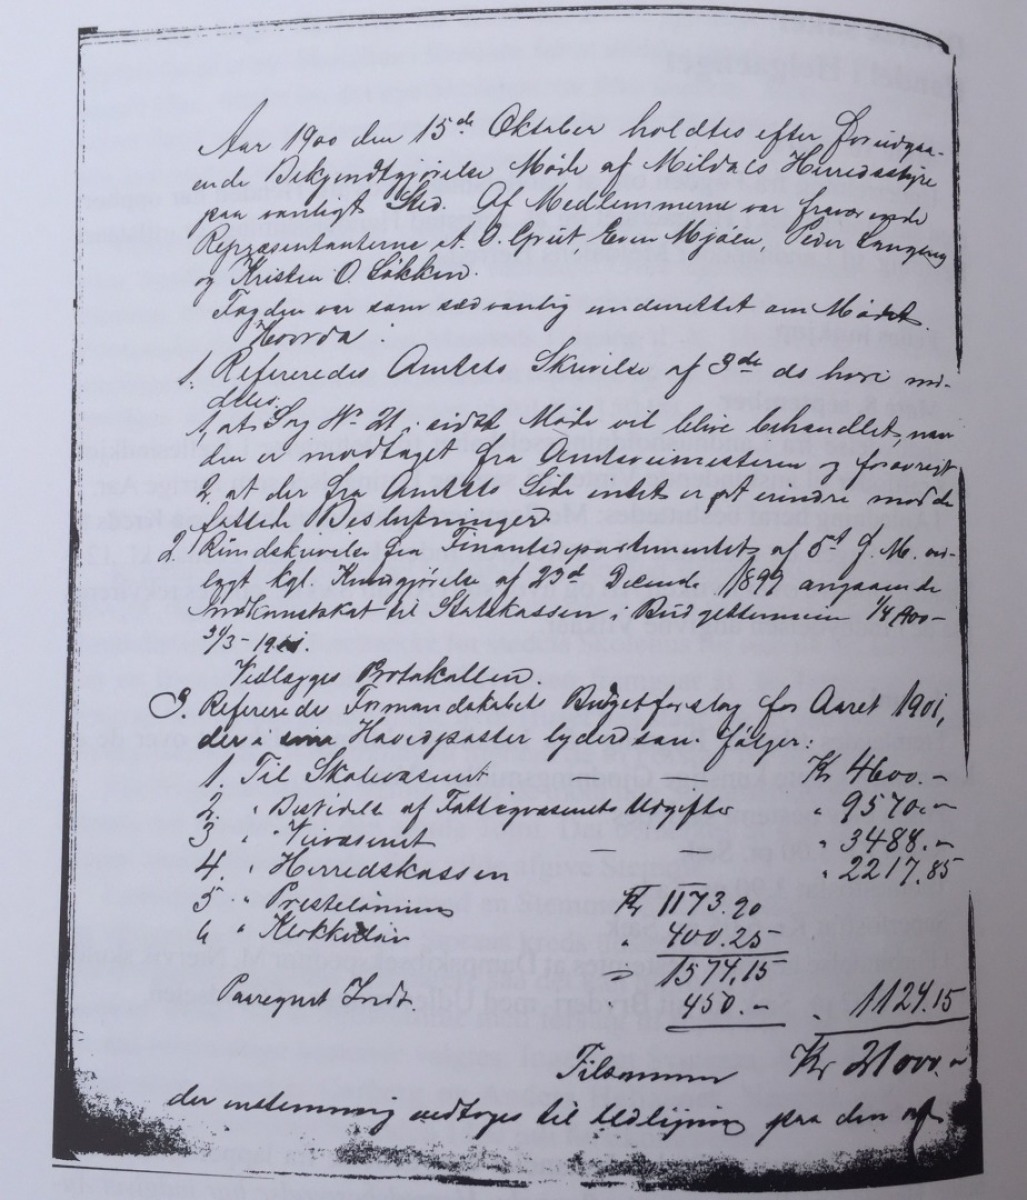 Aar 1900 den 15de Oktober holdtes efter forudgaa-
ende Bekjendtgjørelse Møde af Meldals Herredsstyre
paa vanligt Sted. Af Medlemmerne var fraværende
Repræsentanterne A. O. Grut Even Mjøen, Peder Langeng
og Kristen O. Løkken.
Fogden var som sædvanlig underrettet om Mødet.
Hvorda:
1. Refereredes Amtets Skrivelse af 3de ds hvori med-
deles:
1, at Sag No 21 i sidste Møde vil blive behandlet, naar
den er modtaget fra Amtsveimesteren og forøvrigt
2, at der fra Amtets Side intet er at erindre mod de
fattede Beslutninger.
2. Rundskrivelse fra Finantsdepartementet af 5te f. M. ved-
lagt kgl. Kundgjørelse af 23de Decembr 1899 angaaende
Indkomstskat til Statskassen i Budgetterminen 1/4 1900 –
31/3 – 1901.
Vedlægges Protokollen.
3. Refererede Formandskabets Budgetforslag for Aaret 1901,
der i sine Hovedposter lyder som følger:
1. Til Skolevæsenet — Kr 4600.–
2. " Bestridelse af Fattigvæsenets Udgifter " 9570.–
3 " Veivæsenet — — " 3488.–
4. " Herredskassen " 2217.85
5 " Presteløning Kr 1173.90
6 " Klokkerløn " 400.25
1574.15
Paaregnet Indt. " 450.– " 1124.15
Tilsammen Kr 21000.–
der enstemmig vedtoges til Udligning paa den af